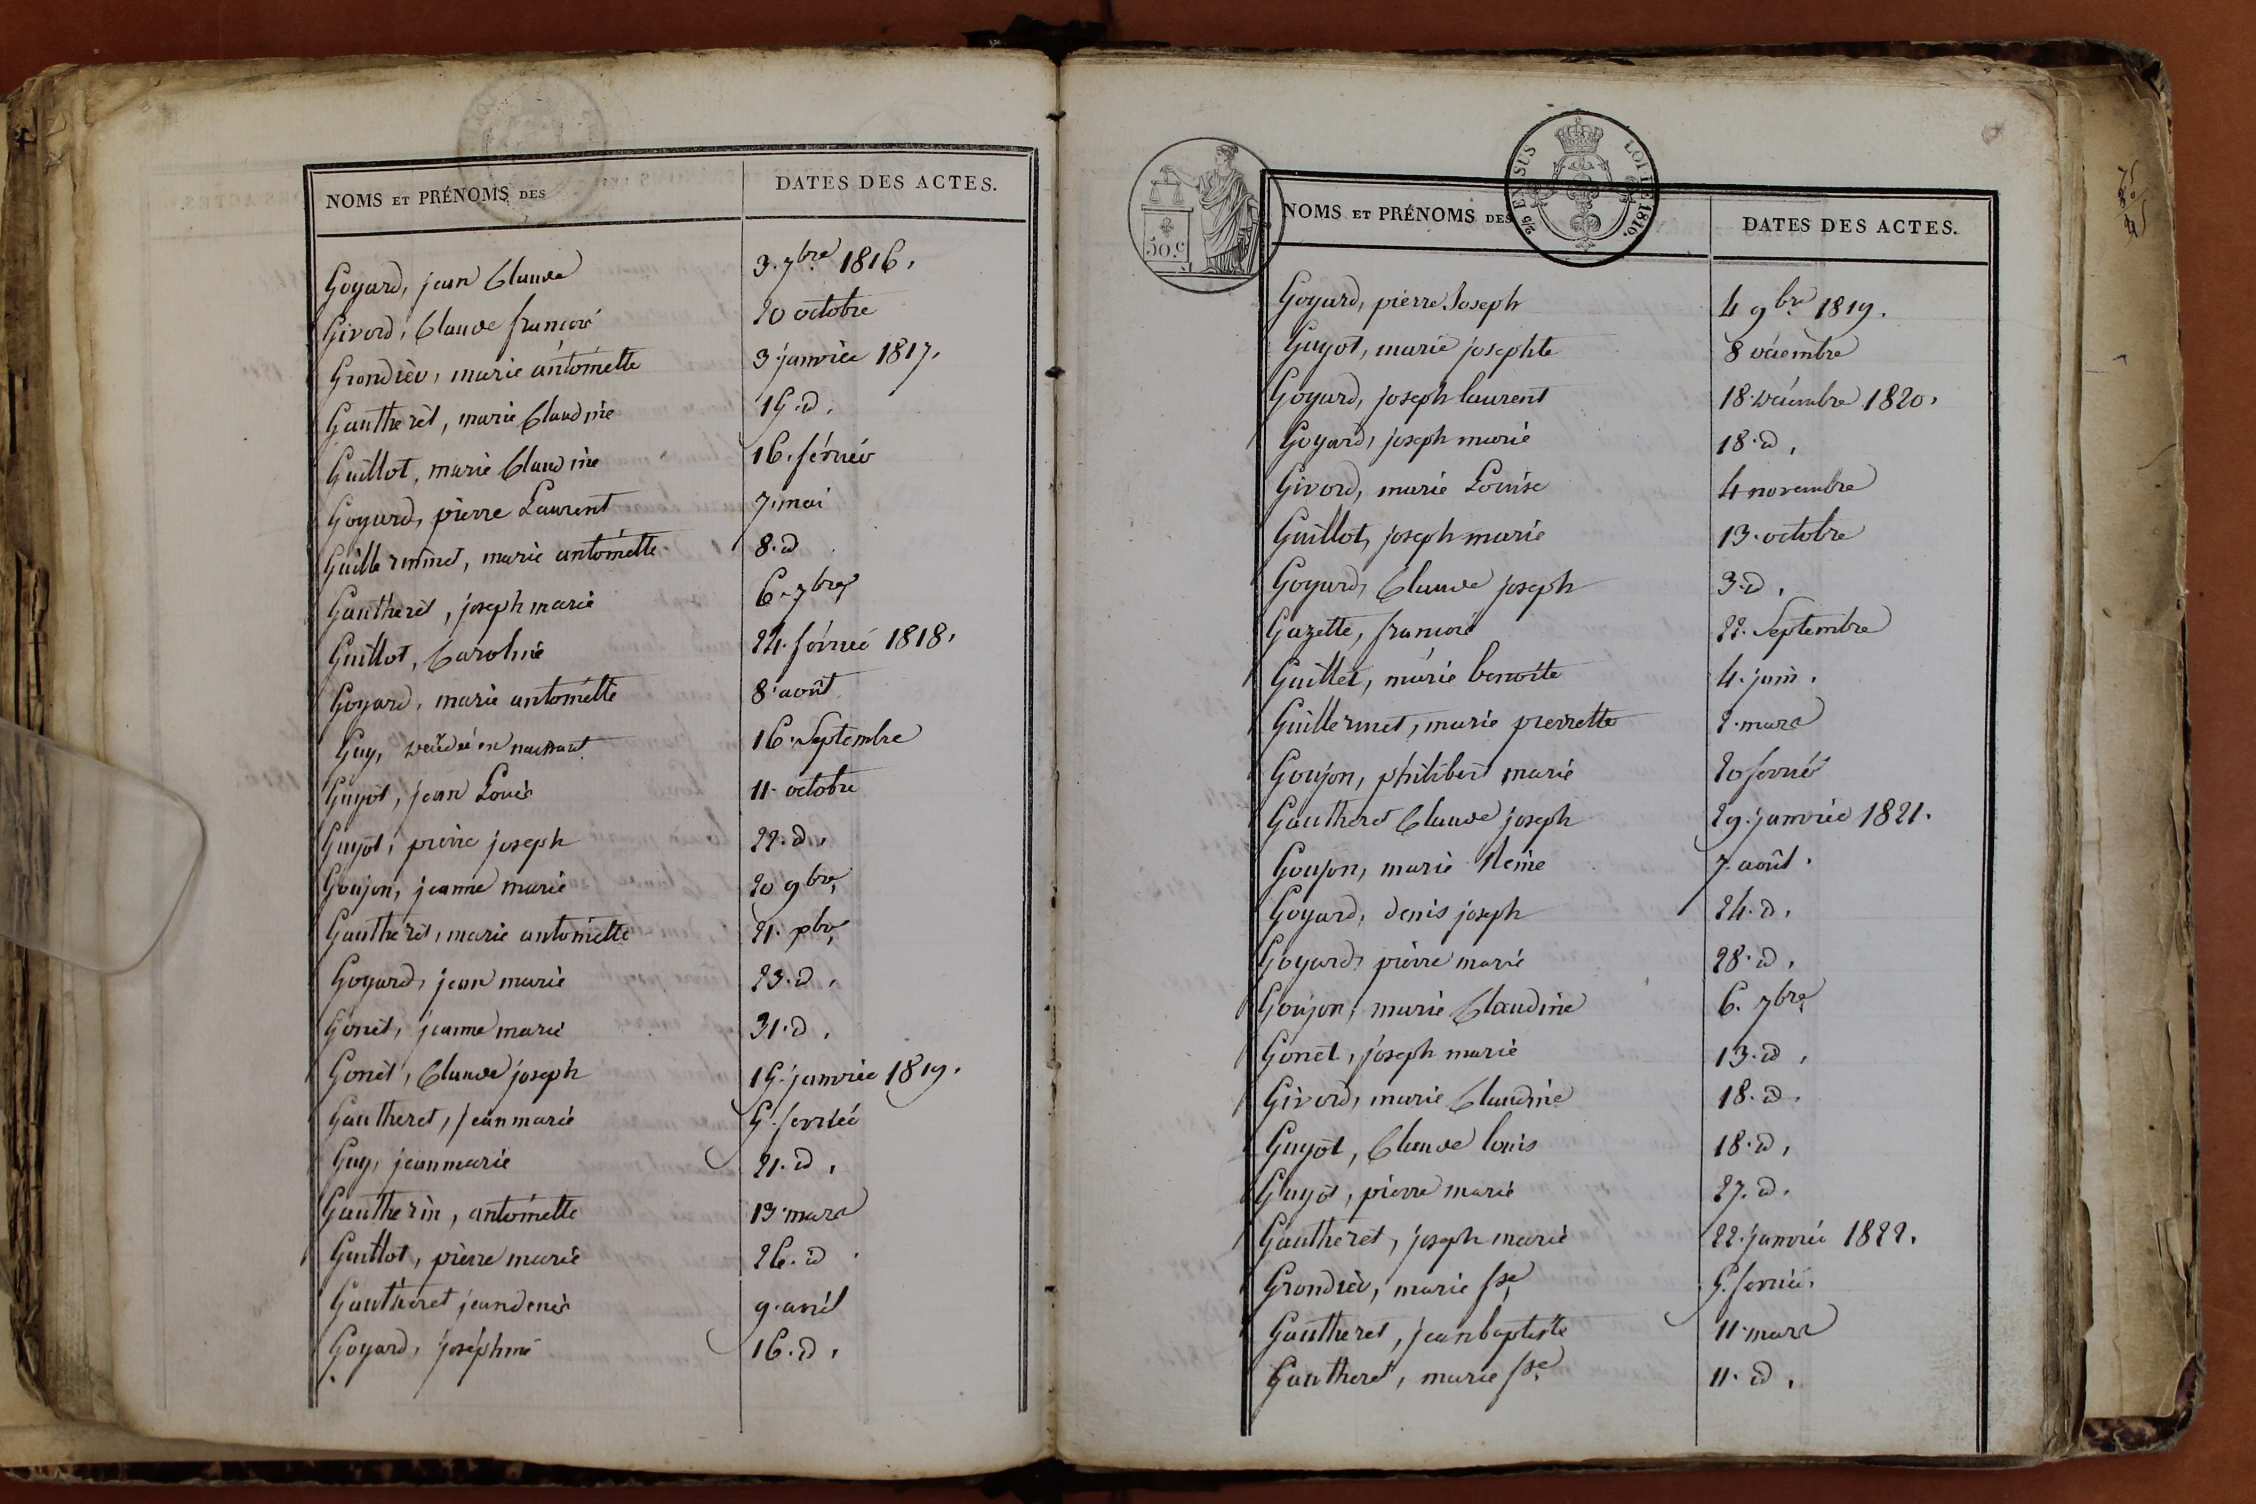 NOMS ET PRÉNOMS DES
DATES DES ACTES.
Goyard, jean Claude 3. 7bre 1816.
Givord, Claude françois 20 octobre
Grondier, marie antoinette 3 janvier 1817.
Gautheret, marie Claudine 15. d.
Guillot, marie Claudine 16. février
Goyard, pierre Laurent 7. mai
Guillermet, marie antoinette 8. d
Gautheret, joseph marie 6. 7bre
Guillot, Caroline 24. février 1818.
Goyard, marie antoinette 8. août
Guy, décédé en naissant 16. Septembre
Guyot, jean Louis 11. octobre
Guyot, pierre joseph 22. d.
Goujon, jeanne marie 20 9bre
Gautheret, marie antoinette 21.
Goyard, jean marie 23. d.
Gonet, jeanne marie 31. d.
Gonet, Claude joseph 15. janvier 1819.
Gautheret, jean marie 5. février
Guy, jean marie 21. d.
Gautherin, antoinette 13 mars
Guillot, pierre marie 26. d
Gautheret jean denis 9. avril
Goyard, joséphine 16. d.
EN SUS
LOI DE 1816.
50. c
NOMS ET PRÉNOMS DES
DATES DES ACTES.
Goyard, pierre Joseph 4 9bre 1819.
Guyot, marie josephte 8 décembre
Goyard, joseph laurent 18. décembre 1820.
Goyard, joseph marie 18. d.
Givord, marie Louise 4 novembre
Guillot, joseph marie 13. octobre
Goyard, Claude joseph 3. d.
Gazette, françois 22. Septembre
Guillet, marie benoite 4. juin.
Guillermet, marie pierrette 2. mars
Goujon, philibert marie 20 février
Gautheret Claude joseph 29. janvier 1821.
Goujon, marie Reine 7. août.
Goyard, denis joseph 24. d.
Goyard, pierre marie 28. d.
Goujon, marie Claudine 6. 7bre
Gonet, joseph marie 13. d.
Givord, marie Claudine 18. d.
Guyot, Claude louis 18. d.
Guyot, pierre marie 27. d.
Gautheret, joseph marie 22. janvier 1822.
Grondier, marie fse 5. février.
Gautheret, jean baptiste 11. mars
Gautheret, marie fse 11. d.